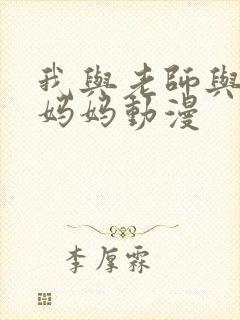 我與老師與
媽媽動漫
李厚霖